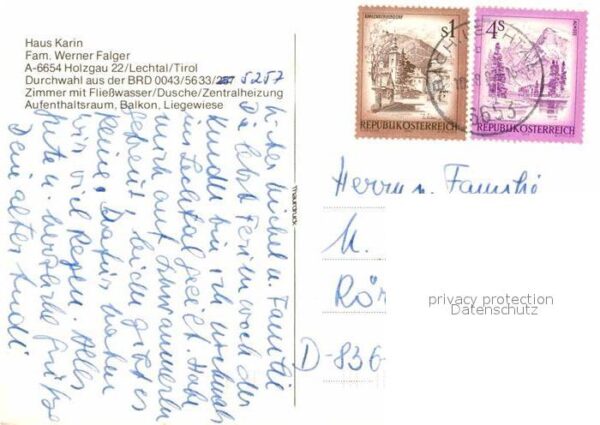 Haus Karin
Fam. Werner Falger
A-6654 Holzgau 22/Lechtal/Tirol
Durchwahl aus der BRD 0043/5633/257 5257
Zimmer mit Fließwasser/Dusche/Zentralheizung
Aufenthaltsraum, Balkon, Liegewiese
Lieber Michel u. Familie
Die letzte Ferienwoche der
Kinder bin ich nochmals
ins Lechtal gereist. Habe
mich auf Schwammerln
gefreut, leider gibt es
keine. Dafür haben
wir viel Regen. Alles
Gute u. herzliche Grüße
Dein alter Rudi
S1
REPUBLIK ÖSTERREICH
4S
REPUBLIK ÖSTERREICH
6653
Herrn u. Familie
M.
Rö
D-836
privacy protection
Datenschutz